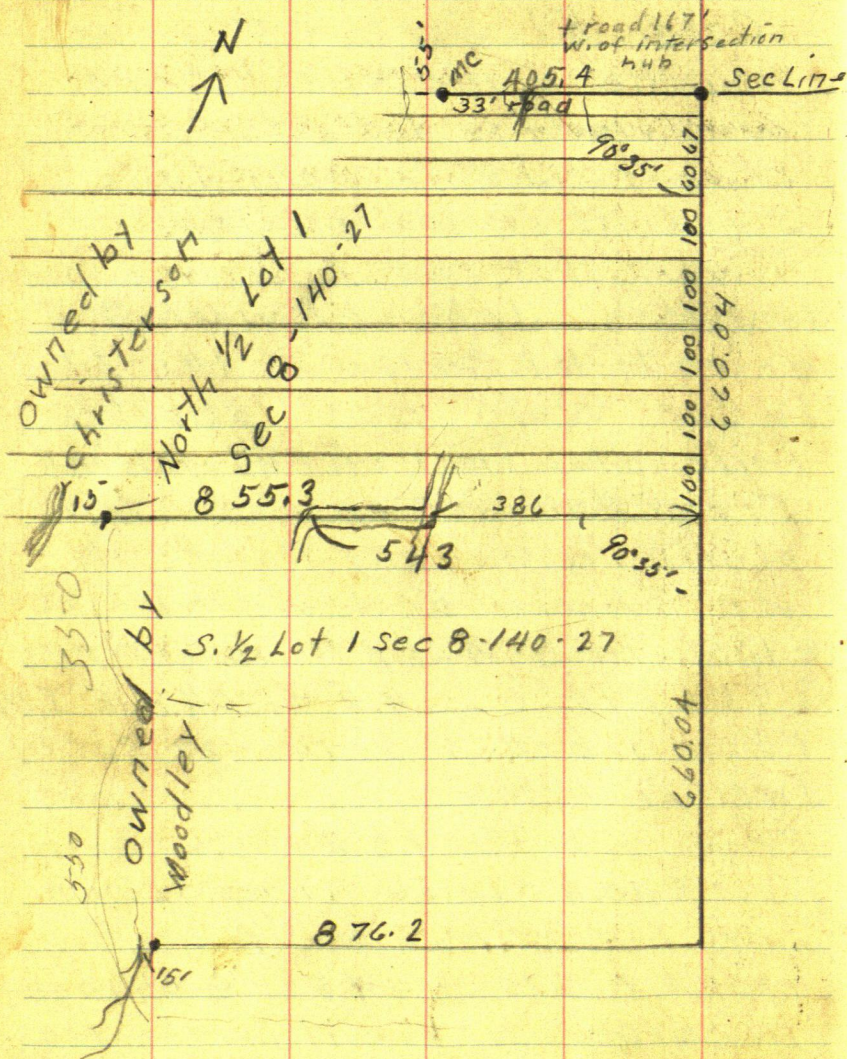 N
+ road 167'
W. of intersection
hub
55'
MC
405.4
Sec Line
33' road
90°35'
67
60
100
100
100
100
100
660.04
Owned by
Christerson
North 1/2 Lot 1
Sec 8-140-27
15
855.3
386
543
90°35'
350
S. 1/2 Lot 1 Sec 8-140-27
Owned by
Woodley
660.04
550
876.2
15'